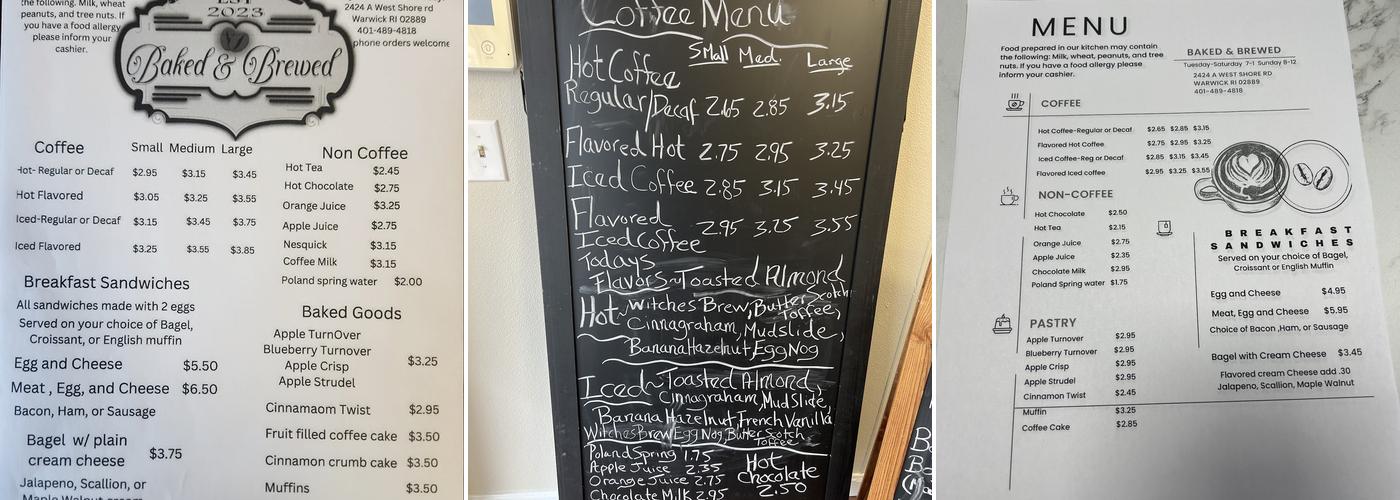 the following. Milk, wheat
peanuts, and tree nuts. If
you have a food allergy
please inform your
cashier.
EST
2023
Baked & Brewed
2424 A West Shore rd
Warwick RI 02889
401-489-4818
phone orders welcome
Coffee Small Medium Large
Hot- Regular or Decaf $2.95 $3.15 $3.45
Hot Flavored $3.05 $3.25 $3.55
Iced-Regular or Decaf $3.15 $3.45 $3.75
Iced Flavored $3.25 $3.55 $3.85
Breakfast Sandwiches
All sandwiches made with 2 eggs
Served on your choice of Bagel,
Croissant, or English muffin
Egg and Cheese $5.50
Meat , Egg, and Cheese $6.50
Bacon, Ham, or Sausage
Bagel w/ plain
cream cheese $3.75
Jalapeno, Scallion, or
Maple Walnut cream
Non Coffee
Hot Tea $2.45
Hot Chocolate $2.75
Orange Juice $3.25
Apple Juice $2.75
Nesquick $3.15
Coffee Milk $3.15
Poland spring water $2.00
Baked Goods
Apple TurnOver
Blueberry Turnover
Apple Crisp
Apple Strudel
$3.25
Cinnamaom Twist $2.95
Fruit filled coffee cake $3.50
Cinnamon crumb cake $3.50
Muffins $3.50
Coffee Menu
Small Med. Large
Hot Coffee
Regular/Decaf 2.65 2.85 3.15
Flavored Hot 2.75 2.95 3.25
Iced Coffee 2.85 3.15 3.45
Flavored
Iced Coffee 2.95 3.25 3.55
Todays
Flavors~Toasted Almond
Hot~Witches Brew, Butterscotch
Toffee,
Cinnagraham, Mudslide,
Banana Hazelnut, Egg Nog
Iced~Toasted Almond,
Cinnagraham, Mudslide,
Banana Hazelnut, French Vanilla
Witches Brew Egg Nog, Butter Scotch
Toffee
Poland Spring 1.75
Apple Juice 2.35
Orange Juice 2.75
Chocolate Milk 2.95
Hot
Chocolate
2.50
MENU
Food prepared in our kitchen may contain
the following: Milk, wheat, peanuts, and tree
nuts. If you have a food allergy please
inform your cashier.
BAKED & BREWED
Tuesday-Saturday 7-1 Sunday 8-12
2424 A WEST SHORE RD
WARWICK RI 02889
401-489-4818
COFFEE
Hot Coffee-Regular or Decaf $2.65 $2.85 $3.15
Flavored Hot Coffee $2.75 $2.95 $3.25
Iced Coffee-Reg or Decaf $2.85 $3.15 $3.45
Flavored Iced coffee $2.95 $3.25 $3.55
NON-COFFEE
Hot Chocolate $2.50
Hot Tea $2.15
Orange Juice $2.75
Apple Juice $2.35
Chocolate Milk $2.95
Poland Spring water $1.75
PASTRY
Apple Turnover $2.95
Blueberry Turnover $2.95
Apple Crisp $2.95
Apple Strudel $2.95
Cinnamon Twist $2.45
Muffin $3.25
Coffee Cake $2.85
BREAKFAST
SANDWICHES
Served on your choice of Bagel,
Croissant or English Muffin
Egg and Cheese $4.95
Meat, Egg and Cheese $5.95
Choice of Bacon ,Ham, or Sausage
Bagel with Cream Cheese $3.45
Flavored cream Cheese add .30
Jalapeno, Scallion, Maple Walnut